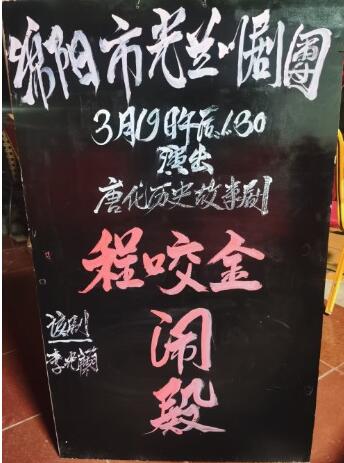 绵阳市光兰川剧團
3月19日午后1:30
演出
唐代历史故事剧
程咬金
闹
殿
该剧
李光